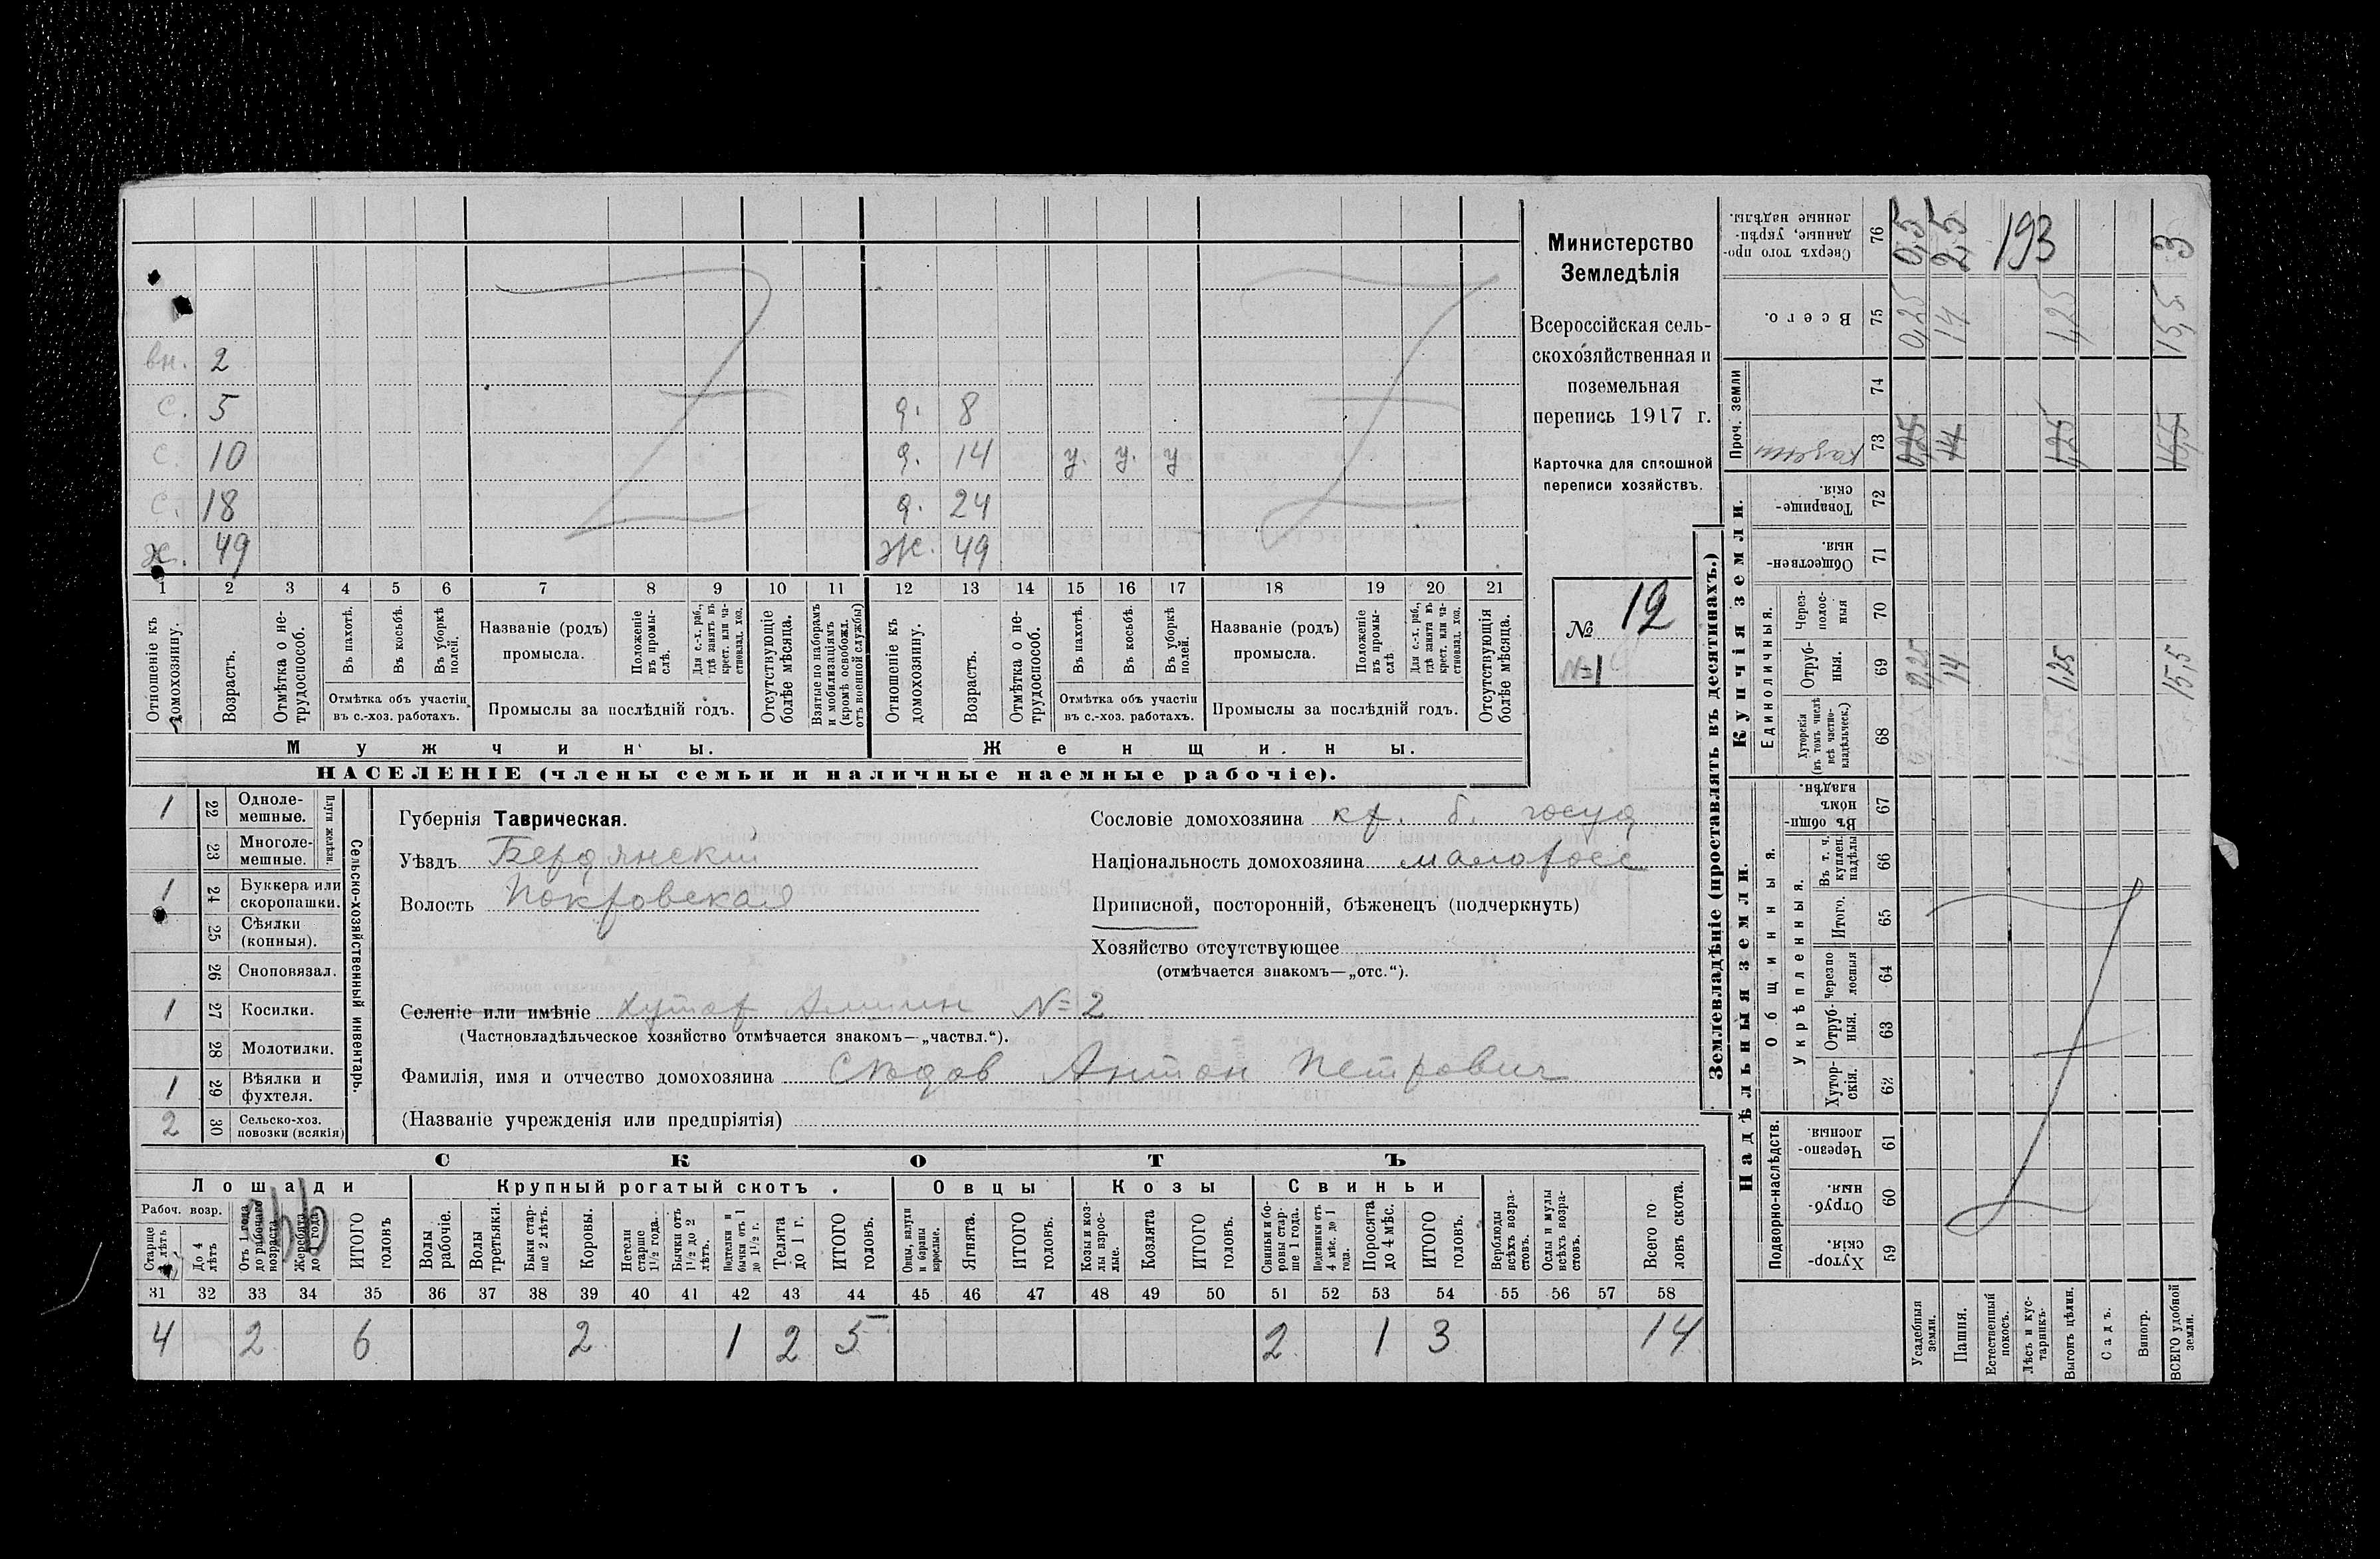 вн. 2
с. 5
с. 10
с. 18
х. 49
д. 8
д. 14 у. у. у
д. 24
ж. 49
1 2 3 4 5 6 7 8 9 10 11 12 13 14 15 16 17 18 19 20 21
Отношеніе къ домохозяину.
Возрастъ.
Отмѣтка о нетрудоспособ.
Въ пахотѣ.
Въ косьбѣ.
Въ уборкѣ полей.
Отмѣтка объ участіи въ с.-хоз. работахъ.
Названіе (родъ) промысла.
Положеніе въ промыслѣ.
Для с.-х. раб., гдѣ занятъ въ крест. или частновлад. хоз.
Промыслы за послѣдній годъ.
Отсутствующіе болѣе мѣсяца.
Взятые по наборамъ и мобилизаціямъ (кромѣ освобожд. отъ военной службы)
Отношеніе къ домохозяину.
Возрастъ.
Отмѣтка о нетрудоспособ.
Въ пахотѣ.
Въ косьбѣ.
Въ уборкѣ полей.
Отмѣтка объ участіи въ с.-хоз. работахъ.
Названіе (родъ) промысла.
Положеніе въ промыслѣ
Для с.-х. раб., гдѣ занята въ крест. или частновлад. хоз.
Промыслы за послѣдній годъ.
Отсутствующія болѣе мѣсяца.
Мужчины.
Женщины.
НАСЕЛЕНІЕ (члены семьи и наличные наемные рабочіе).
Министерство
Земледѣлія
Всероссійская сель-
скохозяйственная и
поземельная
перепись 1917 г.
Карточка для сплошной
переписи хозяйствъ.
№ 12
№1
1 22 Одноле-
мешные.
23 Многоле-
мешные.
Плуги желѣзн.
1 24 Буккера или
скоропашки.
25 Сѣялки
(конныя).
26 Сноповязал.
1 27 Косилки.
28 Молотилки.
1 29 Вѣялки и
фухтеля.
2 30 Сельско-хоз.
повозки (всякія)
Сельско-хозяйственный инвентарь.
Губернія Таврическая.
Уѣздъ Бердянскій
Волость Покровская
Сословіе домохозяина кр. б. госуд
Національность домохозяина малоросс
Приписной, посторонній, бѣженецъ (подчеркнуть)
Хозяйство отсутствующее
(отмѣчается знакомъ—„отс.“).
Селеніе или имѣніе Хутор №2
(Частновладѣльческое хозяйство отмѣчается знакомъ—„частвл.“).
Фамилія, имя и отчество домохозяина Антон Петрович
(Названіе учрежденія или предпріятія)
СКОТЪ
Лошади
Крупный рогатый скотъ.
Овцы
Козы
Свиньи
Рабоч. возр.
Старше 4 лѣтъ
До 4 лѣтъ
Отъ 1 года до рабочаго возраста
Жеребята до 1 года
ИТОГО головъ
Волы рабочіе.
Волы третьяки.
Быки старше 2 лѣтъ.
Коровы.
Нетели старше 1½ года.
Бычки отъ 1½ до 2 лѣтъ.
Подтелки и бычки отъ 1 до 1½ г.
Телята до 1 г.
ИТОГО головъ.
Овцы, валухи и бараны взрослые.
Ягнята.
ИТОГО головъ.
Козы и козлы взрослые.
Козлята
ИТОГО головъ.
Свиньи и боровы старше 1 года.
Подсвинки отъ 4 мѣс. до 1 года.
Поросята до 4 мѣс.
ИТОГО головъ.
Верблюды всѣхъ возрастовъ.
Ослы и мулы всѣхъ возрастовъ.
Всего головъ скота.
31 32 33 34 35 36 37 38 39 40 41 42 43 44 45 46 47 48 49 50 51 52 53 54 55 56 57 58
4 2 6 2 1 2 5 2 1 3 14
Землевладѣніе (проставлять въ десятинахъ.)
Сверхъ того проданные, укрѣпленные надѣлы. 76 0,5 2,5 193 3
Всего. 75 0,25 14 1,25 15,5
Проч. земли
74
казен 73 0,25 14 1,25 15,5
Купчія земли.
Товарищескія. 72
Общественныя. 71
Единоличныя.
Черезполосныя 70
Отрубныя. 69 0,25 14 1,25 15,5
Хуторскія (въ томъ числѣ всѣ частновладѣльческ.) 68
Надѣльныя земли.
Общинныя.
Въ общинномъ владѣн. 67
Укрѣпленныя.
Въ т. ч. куплен. надѣлы 66
Итого. 65
Черезполосныя 64
Отрубныя. 63
Хуторскія. 62
Подворно-наслѣдств.
Черезполосныя. 61
Отрубныя. 60
Хуторскія. 59
Усадебныя земли.
Пашня.
Естественный покосъ.
Лѣсъ и кустарникъ.
Выгонъ цѣлин.
Садъ.
Виногр.
ВСЕГО удобной земли.